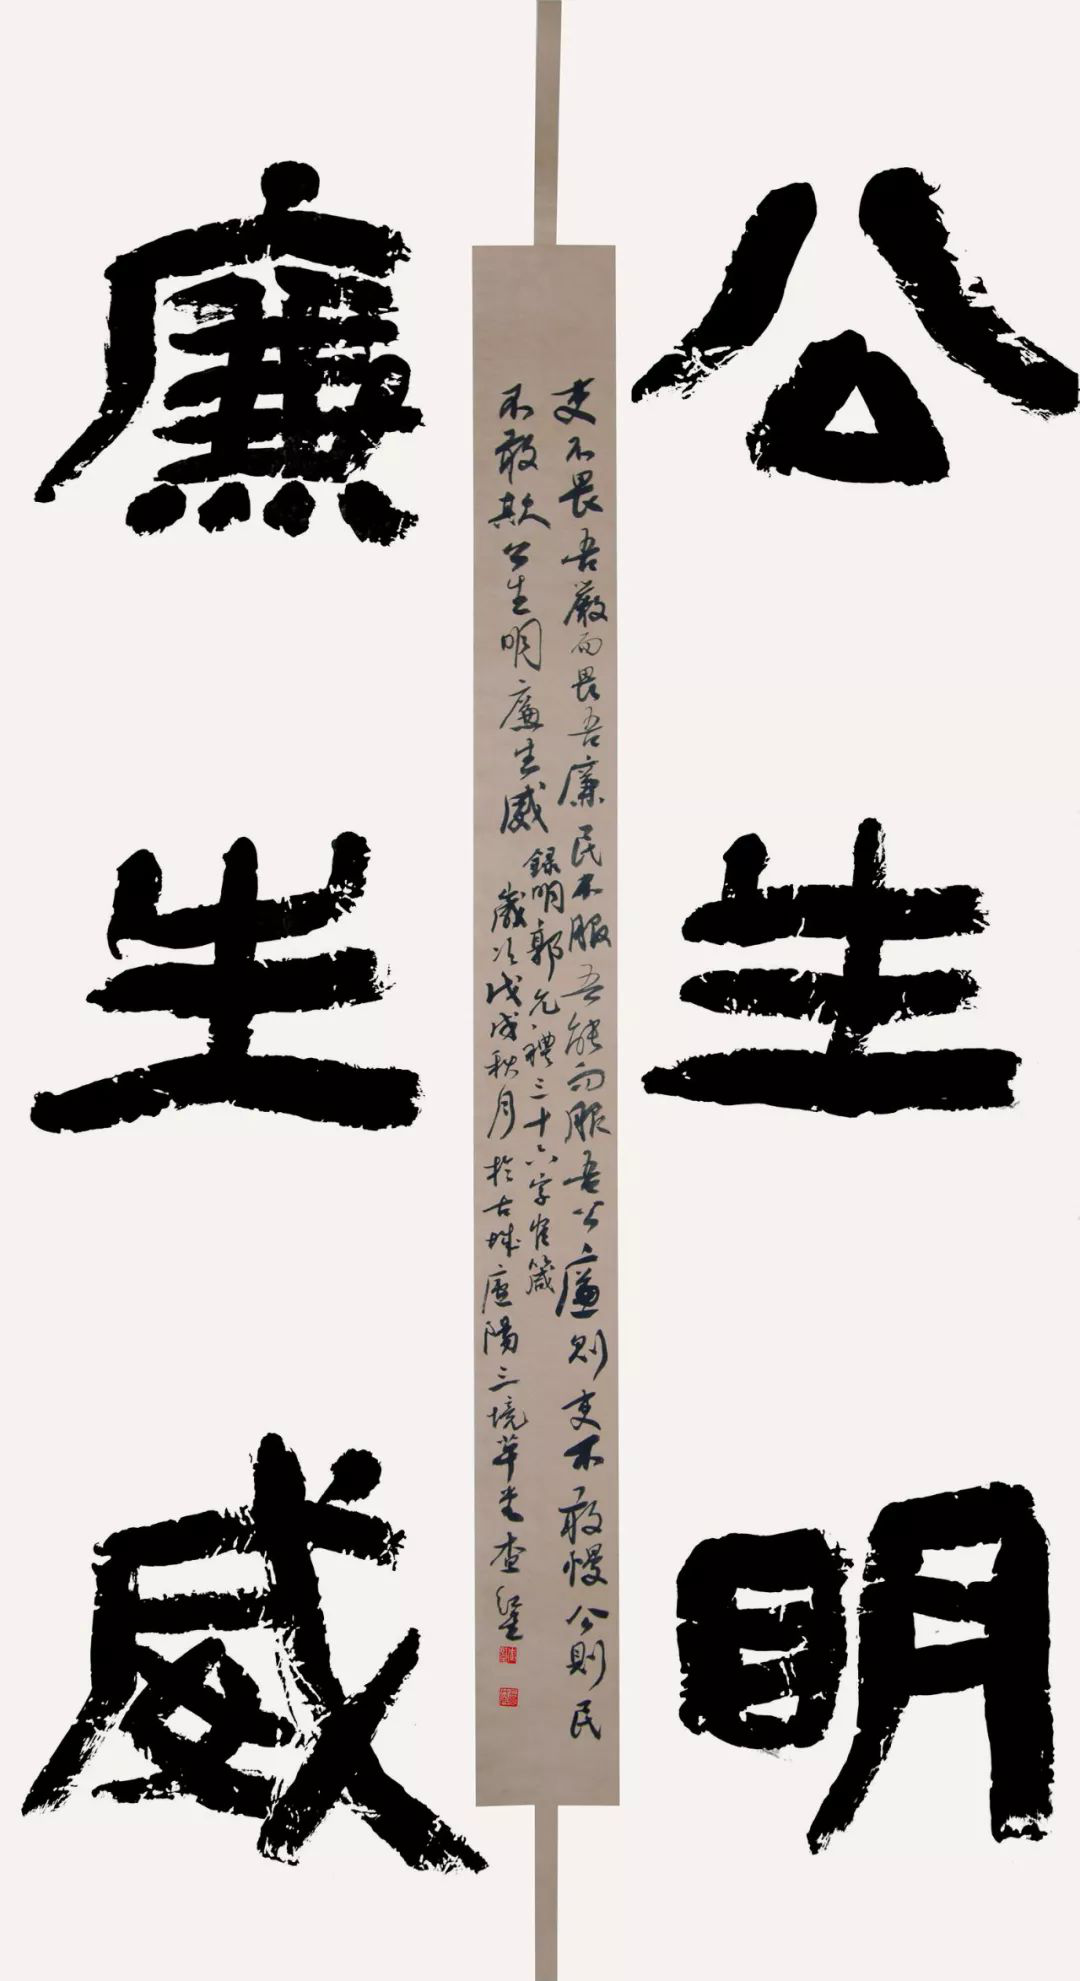 公生明
吏不畏吾嚴而畏吾廉民不服吾能而服吾公廉則吏不敢慢公則民
不敢欺公生明廉生威
錄明郭允禮三十六字官箴
歲次戊戌秋月於古城廬陽三境草堂查
廉生威